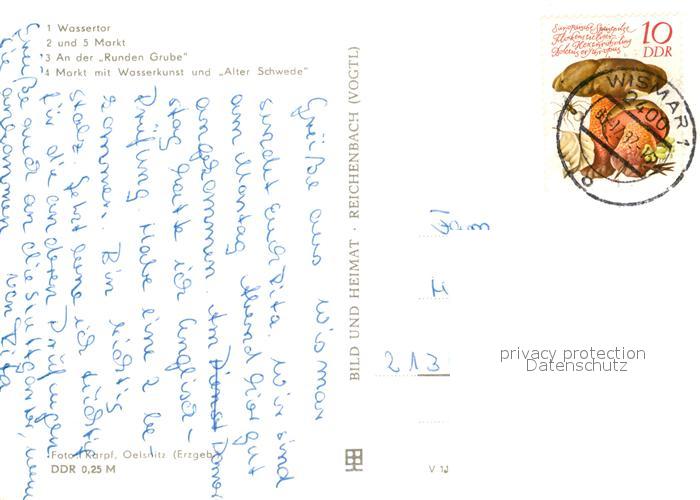 1 Wassertor
2 und 5 Markt
3 An der „Runden Grube"
4 Markt mit Wasserkunst und „Alter Schwede"
Grüße aus Wismar
sendet Euch Rita. Wir sind
am Montag Abend hier gut
angekommen. Am Donners-
stag hatte ich Englisch-
Prüfung. Habe eine 2 be-
kommen. Bin richtig
stolz. Jetzt lerne ich tüchtig
für die anderen Prüfungen
Grüße auch an die Stuttgarter, wenn
sie ankommen von Rita
Foto: Karpf, Oelsnitz (Erzgeb
DDR 0,25 M
BILD UND HEIMAT · REICHENBACH (VOGTL)
V 11
Fam
H
213
10
DDR
WISMAR 1
2400
privacy protection
Datenschutz